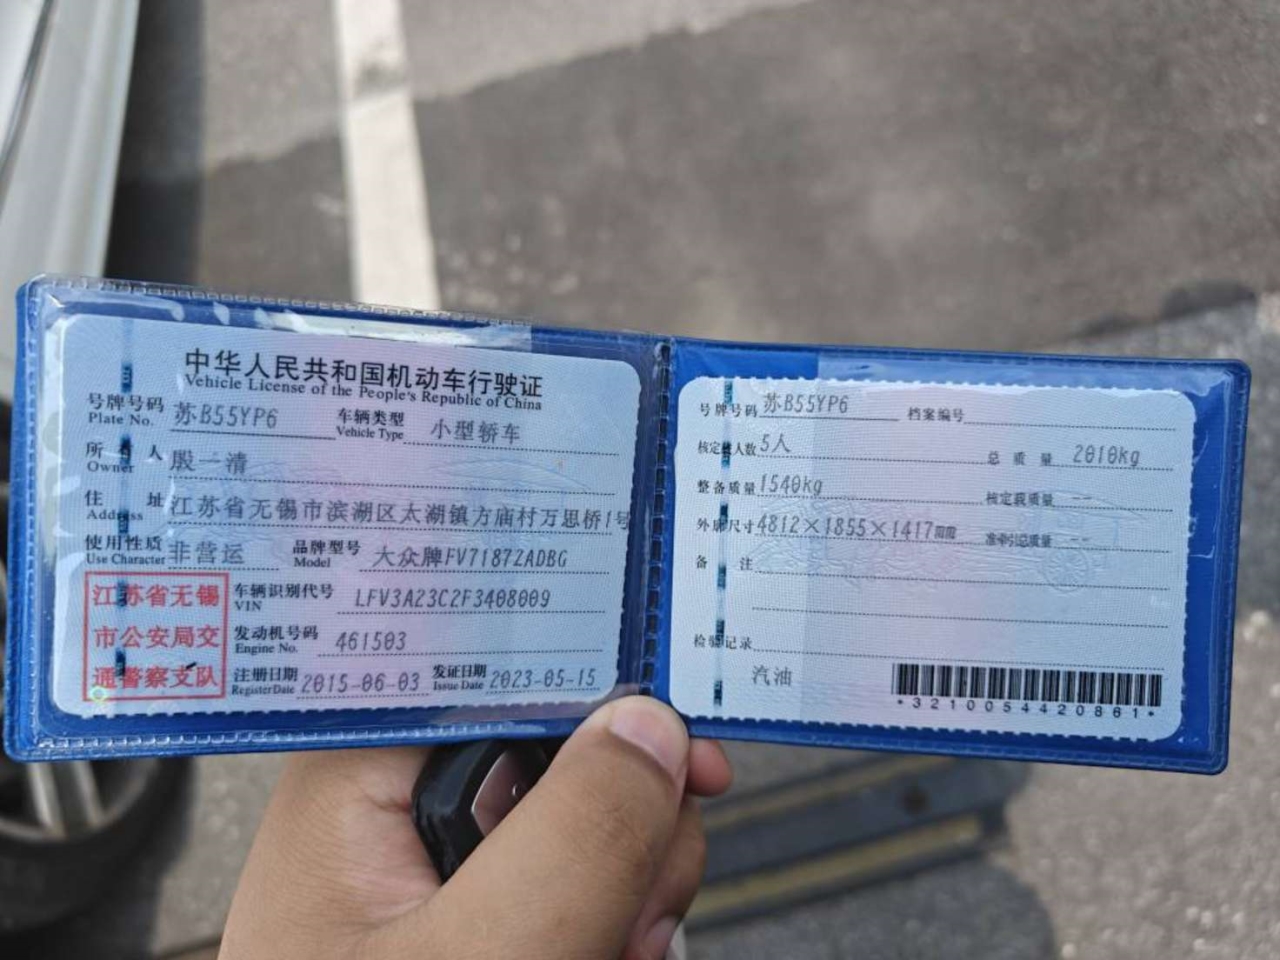 中华人民共和国机动车行驶证
Vehicle License of the People's Republic of China
号牌号码 苏B55YP6 车辆类型 小型轿车
Plate No. Vehicle Type
所有人 殷一清
Owner
住址 江苏省无锡市滨湖区太湖镇方庙村万思桥1号
Address
使用性质 非营运 品牌型号 大众牌FV7187ZADBG
Use Character Model
江苏省无锡市公安局交通警察支队
车辆识别代号 LFV3A23C2F3408009
VIN
发动机号码 461503
Engine No.
注册日期 2015-06-03 发证日期 2023-05-15
Register Date Issue Date
号牌号码 苏B55YP6 档案编号
核定载人数 5人 总质量 2010kg
整备质量 1540kg 核定载质量 --
外廓尺寸 4812×1855×1417mm 准牵引总质量 --
备注
检验记录
汽油
*3210054420861*